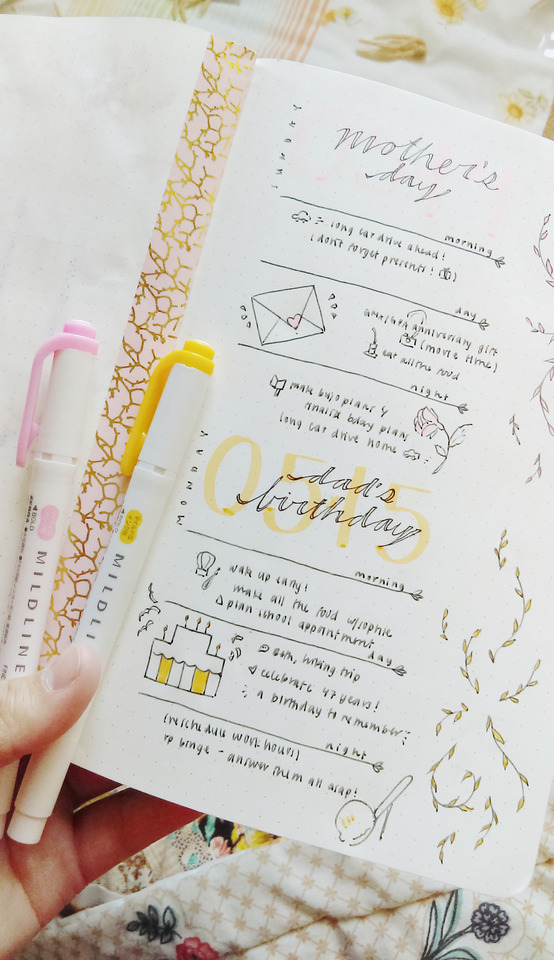 SUNDAY
mother's
day
morning
long car drive ahead!
(don't forget presents!)
day
anniversary gift
(movie time)
eat all the food
night
make bujo plans &
finalize bday plans
long car drive home
MONDAY
0515
dad's
birthday
morning
wake up early!
make all the food w/sophie
plan school appointment
day
hiking trip
celebrate 47 years!
a birthday to remember
night
(reschedule work hours)
rp binge - answer them all asap!
MILDLINE
BOLD
ZEBRA
MILDLIN